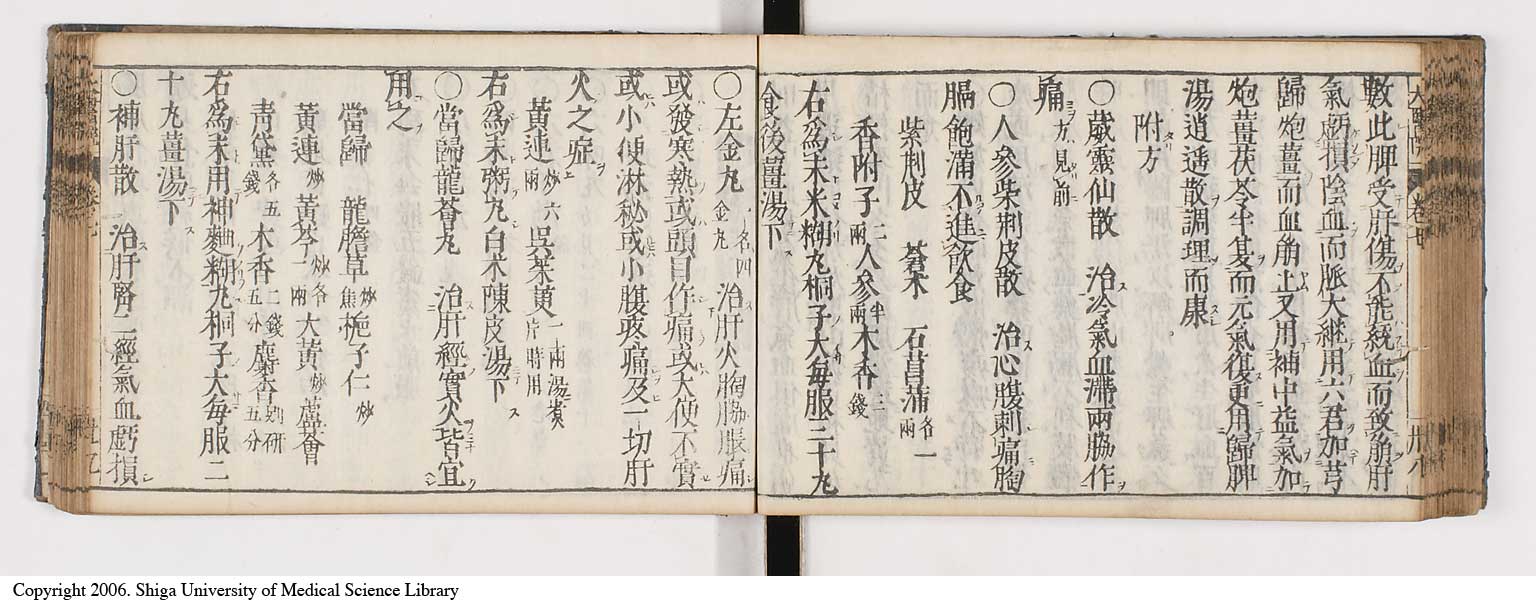 數此脾受肝傷不能統血而致崩肝
氣虧損陰血而脈大繼用六君加芎
歸炮薑而血崩止又用補中益氣加
炮薑茯苓半夏而元氣復更用歸脾
湯逍遙散調理而康
附方
〇葳靈仙散 治冷氣血滯兩脇作
痛方見前
〇人參紫荆皮散 治心腹刺痛胸
膈飽滿不進飲食
紫荆皮 蒼朮 石菖蒲各一兩
香附子二兩人參半兩木香三錢
右爲末米糊丸桐子大每服三十丸
食後薑湯下
〇左金丸 治肝火胸脇脹痛
或發寒熱或頭目作痛或大便不實
或小便淋秘或小腹疼痛及一切肝
火之症
黃連炒六兩吳茱萸一兩湯煑片時用
右爲末粥丸白朮陳皮湯下
〇當歸龍薈丸 治肝經實火皆宜
用之
當歸 龍膽草炒焦梔子仁炒
黃連炒黃芩炒各一兩大黃炒蘆薈
青黛各五錢木香二錢五分麝香別研五分
右爲末用神麯糊丸桐子大每服二
十丸薑湯下
〇補肝散 治肝腎二經氣血虧損
Copyright 2006. Shiga University of Medical Science Library